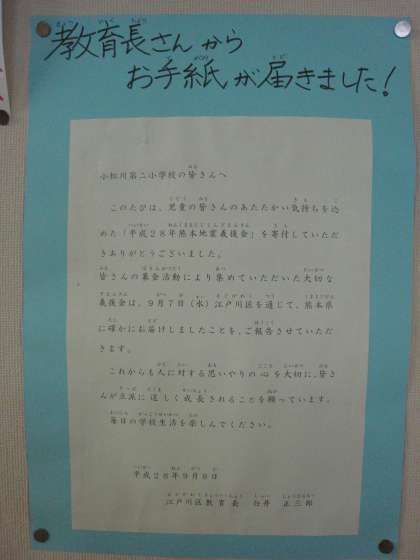 教育長さんから
お手紙が届きました!
小松川第二小学校の皆さんへ
このたびは、児童の皆さんのあたたかい気持ちを込
めた「平成28年熊本地震義援金」を寄付していただ
きありがとうございました。
皆さんの募金活動により集めていただいた大切な
義援金は、9月7日(水)江戸川区を通じて、熊本県
に確かにお届けしましたことを、ご報告させていただ
きます。
これからも人に対する思いやりの心を大切に、皆さ
んが立派に逞しく成長されることを願っています。
毎日の学校生活を楽しんでください。
平成28年9月8日
江戸川区教育長 白井 正三郎